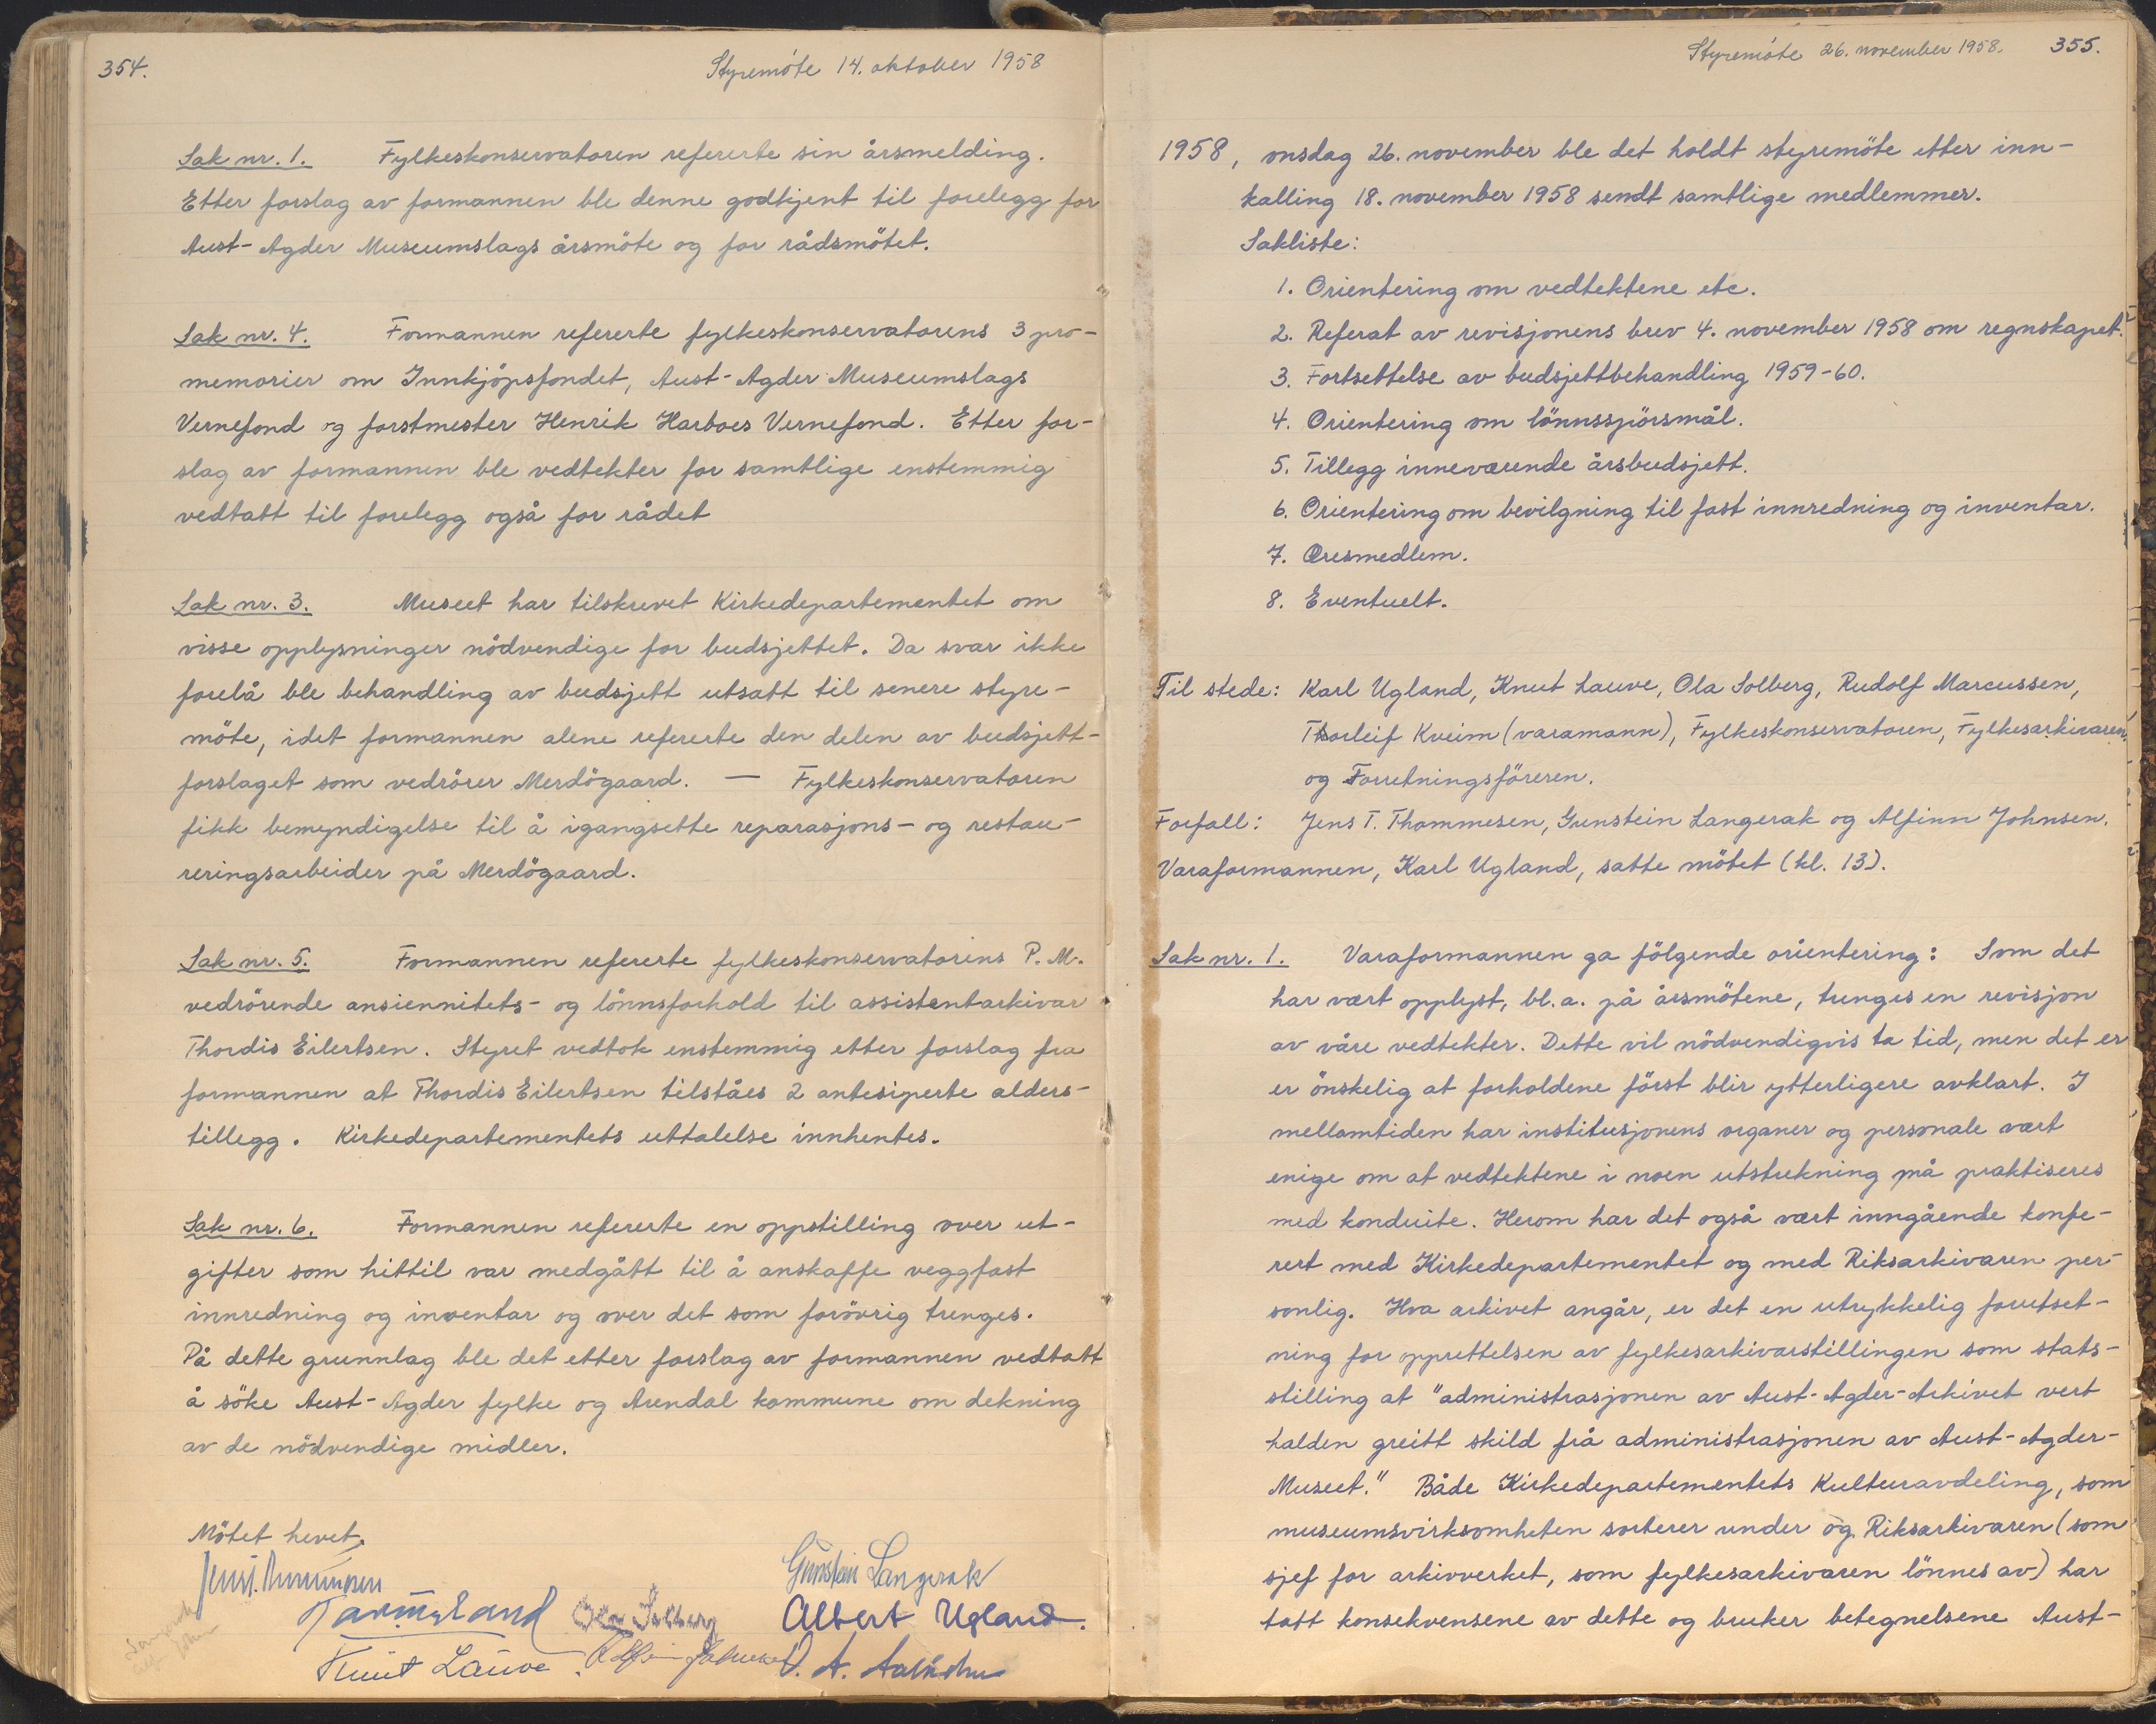 354.
Styremöte 14. oktober 1958
Sak nr. 1. Fylkeskonservatoren refererte sin årsmelding.
Etter forslag av formannen ble denne godkjent til forelegg for
Aust-Agder Museumslags årsmöte og for rådsmötet.
Sak nr. 4. Formannen refererte fylkeskonservatorens 3 pro-
memorier om Innkjöpsfondet, Aust-Agder Museumslags
Vernefond og forstmester Henrik Harboes Vernefond. Etter for-
slag av formannen ble vedtekter for samtlige enstemmig
vedtatt til forelegg også for rådet
Sak nr. 3. Museet har tilskrevet Kirkedepartementet om
visse opplysninger nödvendige for budsjettet. Da svar ikke
forelå ble behandling av budsjett utsatt til senere styre-
möte, idet formannen alene refererte den delen av budsjett-
forslaget som vedrörer Merdögaard. — Fylkeskonservatoren
fikk bemyndigelse til å igangsette reparasjons- og restau-
reringsarbeider på Merdögaard.
Sak nr. 5. Formannen refererte fylkeskonservatorens P.M.
vedrörende ansiennitets- og lönnsforhold til assistentarkivar
Thordis Eilertsen. Styret vedtok enstemmig etter forslag fra
formannen at Thordis Eilertsen tilståes 2 antesiperte alders-
tillegg. Kirkedepartementets uttalelse innhentes.
Sak nr. 6. Formannen refererte en oppstilling over ut-
gifter som hittil var medgått til å anskaffe veggfast
innredning og inventar og over det som forövrig trenges.
På dette grunnlag ble det etter forslag av formannen vedtatt
å söke Aust-Agder fylke og Arendal kommune om dekning
av de nödvendige midler.
Mötet hevet.
Gunstein Langerak
Ola Solberg Albert Ugland.
Knut Lauve. Alfinn Johnsen
Styremöte 26. november 1958. 355.
1958, onsdag 26. november ble det holdt styremöte etter inn-
kalling 18. november 1958 sendt samtlige medlemmer.
Sakliste:
1. Orientering om vedtektene etc.
2. Referat av revisjonens brev 4. november 1958 om regnskapet.
3. Fortsettelse av budsjettbehandling 1959-60.
4. Orientering om lönnsspörsmål.
5. Tillegg inneværende årsbudsjett.
6. Orientering om bevilgning til fast innredning og inventar.
7. Æresmedlem.
8. Eventuelt.
Til stede: Karl Ugland, Knut Lauve, Ola Solberg, Rudolf Marcussen,
Thorleif Kveim (varamann), Fylkeskonservatoren, Fylkesarkivaren
og Forretningsföreren.
Forfall: Jens T. Thommesen, Gunstein Langerak og Alfinn Johnsen.
Varaformannen, Karl Ugland, satte mötet (kl. 13).
Sak nr. 1. Varaformannen ga fölgende orientering: Som det
har vært opplyst, bl.a. på årsmötene, trenges en revisjon
av våre vedtekter. Dette vil nödvendigvis ta tid, men det er
er önskelig at forholdene först blir ytterligere avklart. I
mellomtiden har institusjonens organer og personale vært
enige om at vedtektene i noen utstrekning må praktiseres
med konduite. Herom har det også vært inngående konfe-
rert med Kirkedepartementet og med Riksarkivaren per-
sonlig. Hva arkivet angår, er det en utrykkelig forutset-
ning for opprettelsen av fylkesarkivarstillingen som stats-
stilling at "administrasjonen av Aust-Agder-Arkivet vert
halden greitt skild frå administrasjonen av Aust-Agder-
Museet." Både Kirkedepartementets Kulturavdeling, som
museumsvirksomheten sorterer under og Riksarkivaren (som
sjef for arkivverket, som fylkesarkivaren lönnes av) har
tatt konsekvensene av dette og bruker betegnelsene Aust-